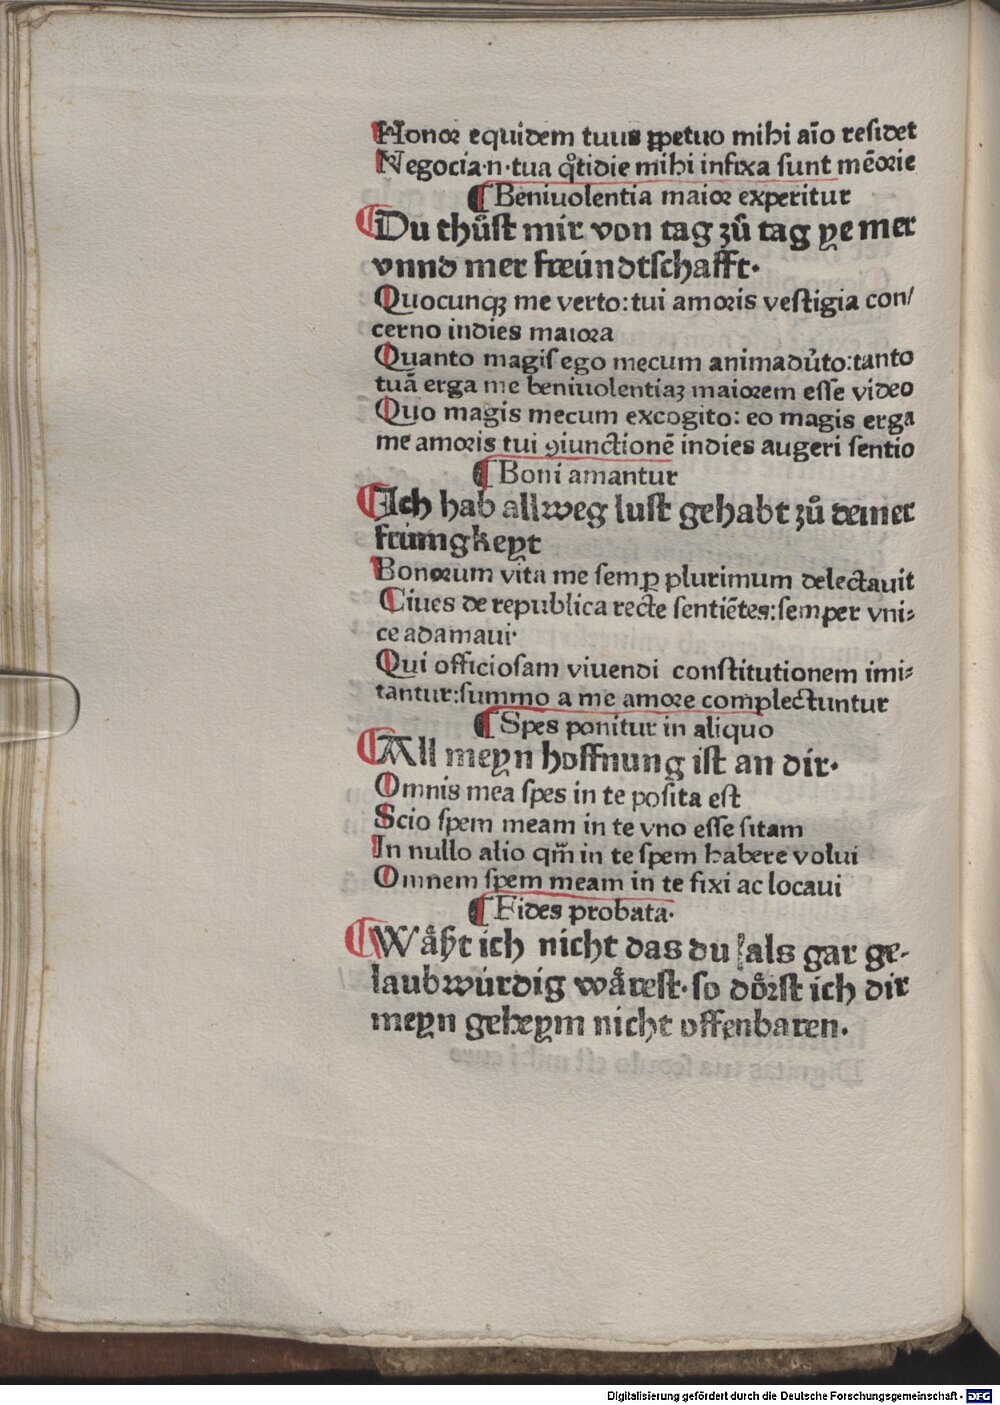 Honor equidem tuus ꝑpetuo mihi aīo residet
Negocia·n·tua qͦtidie mihi infixa sunt mēorie
¶ Beniuolentia maior experitur
Du thůst mir von tag zů tag ye mer
vnnd mer freündtschafft·
Quocunqꝫ me verto: tui amoris vestigia con/
cerno indies maiora
Quanto magis ego mecum animadũto: tanto
tuā erga me beniuolentiaꝫ maiorem esse video
Quo magis mecum excogito: eo magis erga
me amoris tui ꝯiunctionē indies augeri sentio
¶ Boni amantur
Ich hab allweg lust gehabt zů deiner
frümgkeyt
Bonorum vita me semꝑ plurimum delectauit
Ciues de republica recte sentiētes: semper vni⸗
ce adamaui·
Qui officiosam viuendi constitutionem imi⸗
tantur: summo a me amore complectuntur
¶ Spes ponitur in aliquo
All meyn hoffnung ist an dir·
Omnis mea spes in te posita est
Scio spem meam in te vno esse sitam
In nullo alio qm̄ in te spem habere volui
Omnem spem meam in te fixi ac locaui
¶ Fides probata·
Wåßt ich nicht das du als gar ge⸗
laubwürdig wårest· so dôrst ich dir
meyn geheym nicht offenbaren·
Digitalisierung gefördert durch die Deutsche Forschungsgemeinschaft - DFG